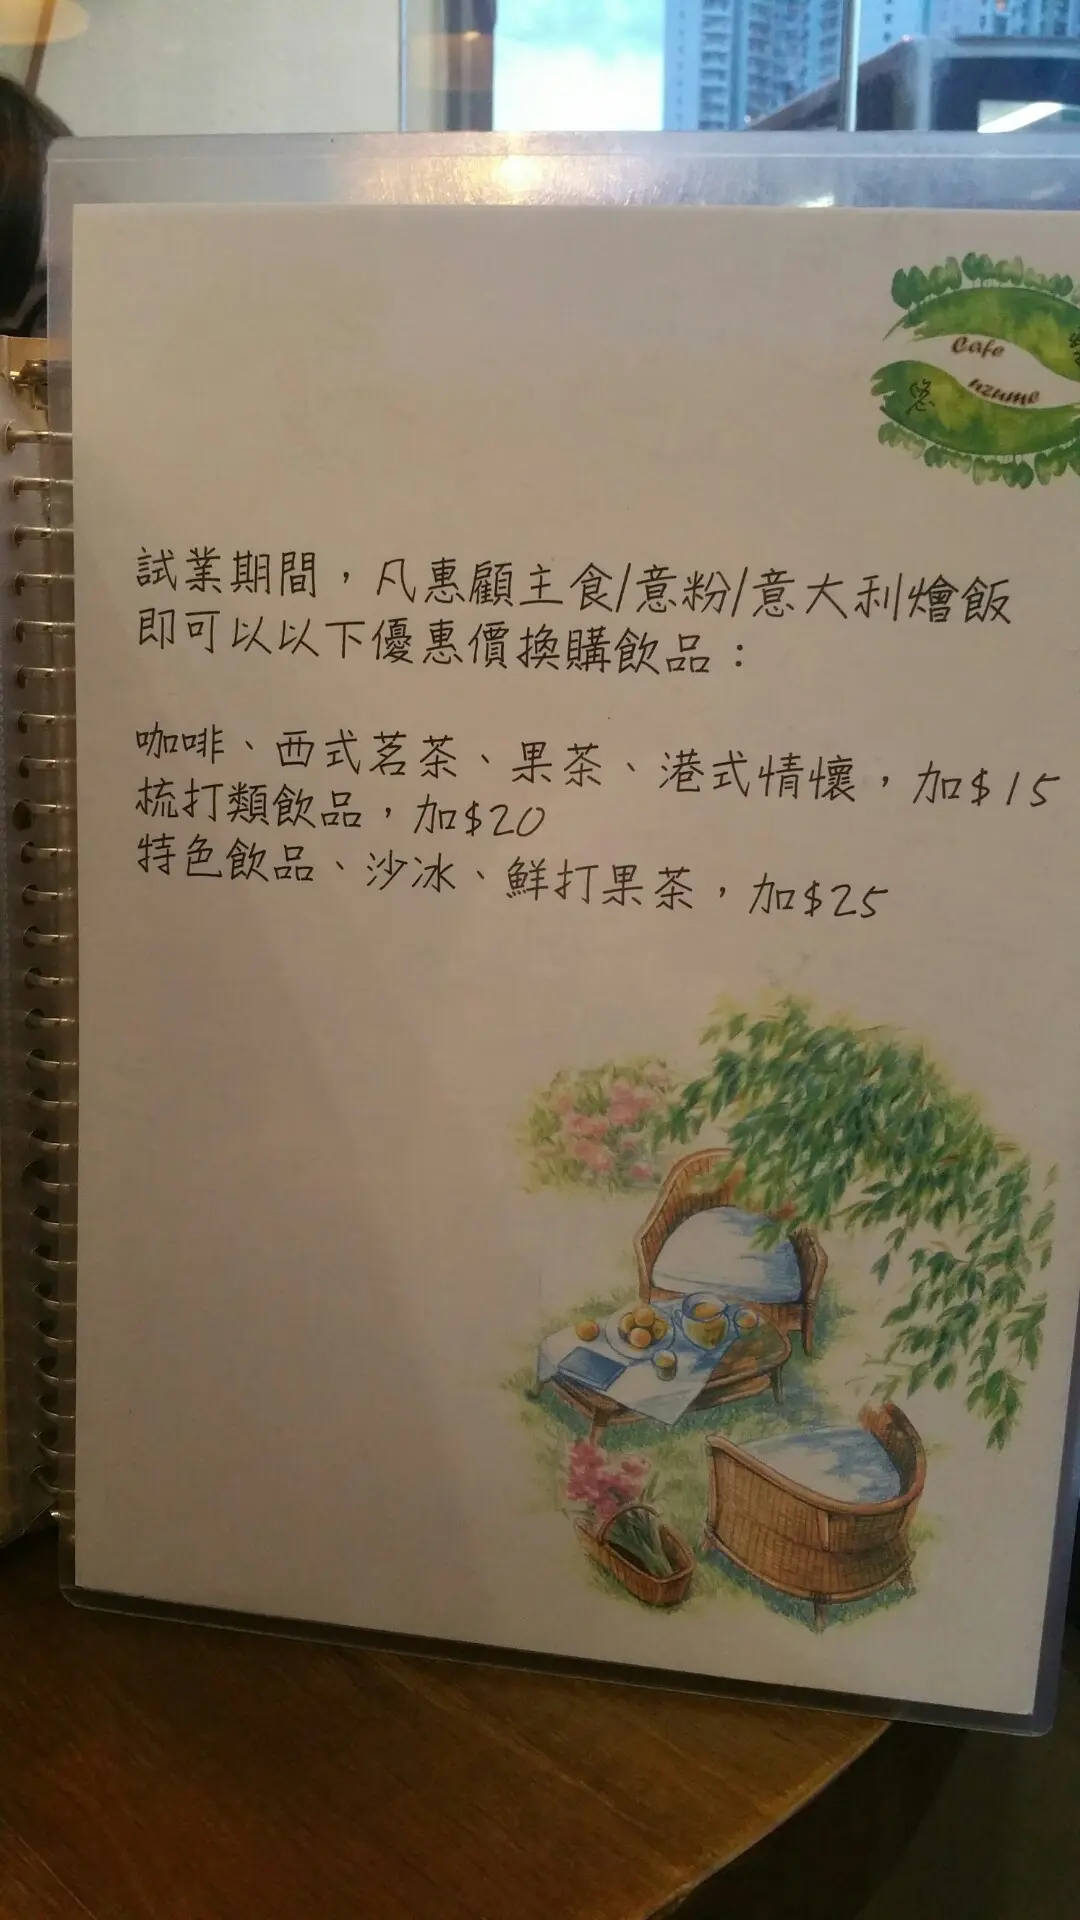 Cafe
uzume
悠
試業期間，凡惠顧主食/意粉/意大利燴飯
即可以以下優惠價換購飲品：
咖啡、西式茗茶、果茶、港式情懷，加$15
梳打類飲品，加$20
特色飲品、沙冰、鮮打果茶，加$25